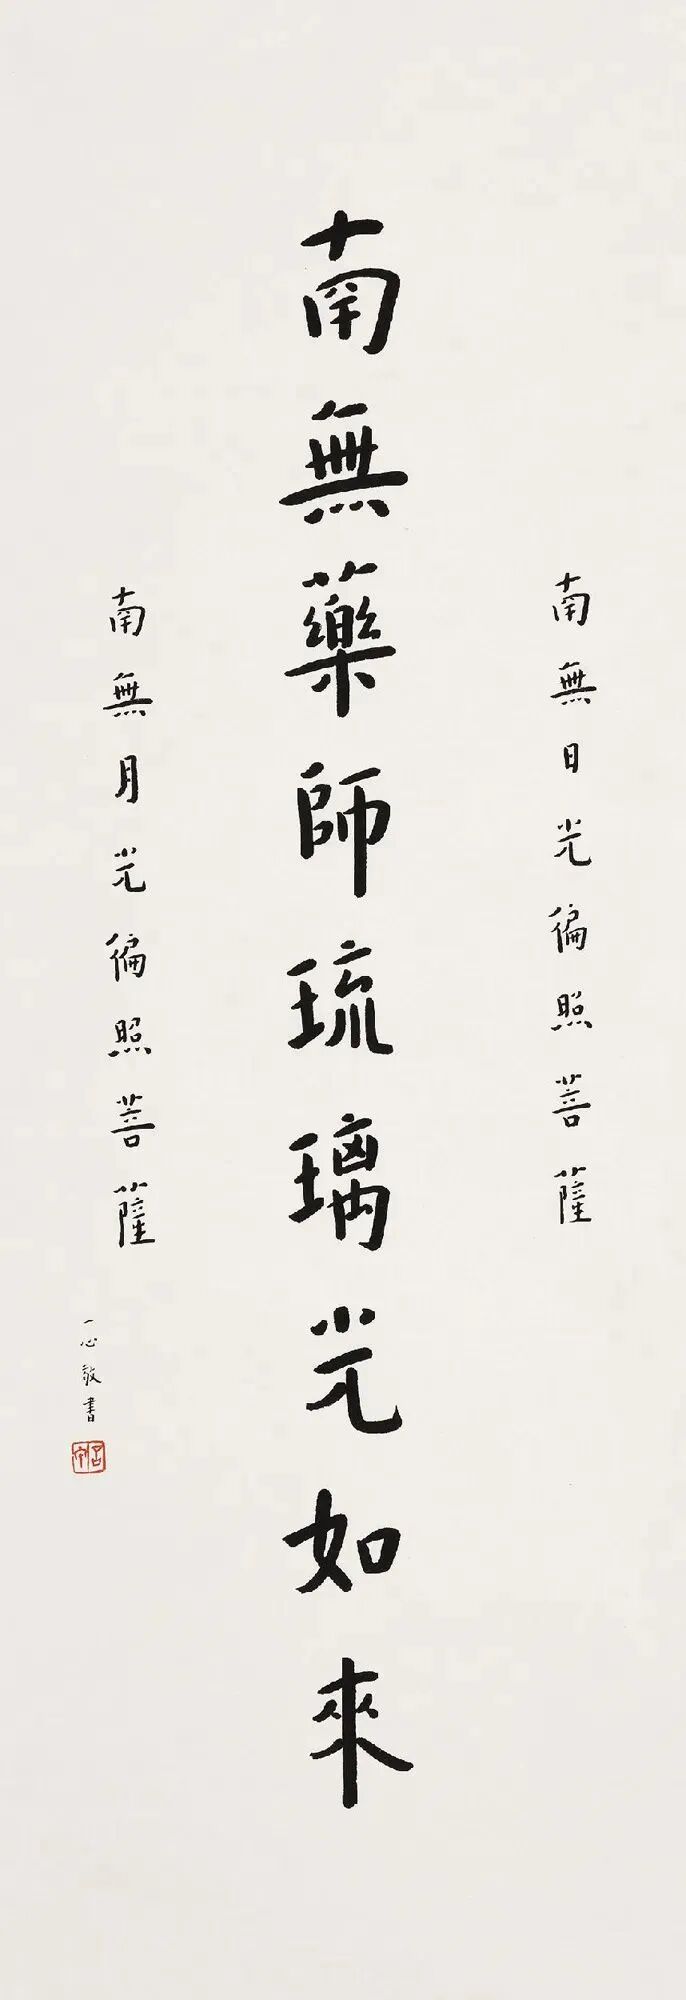 南無日光徧照菩薩
南無藥師琉璃光如來
南無月光徧照菩薩
一心敬書